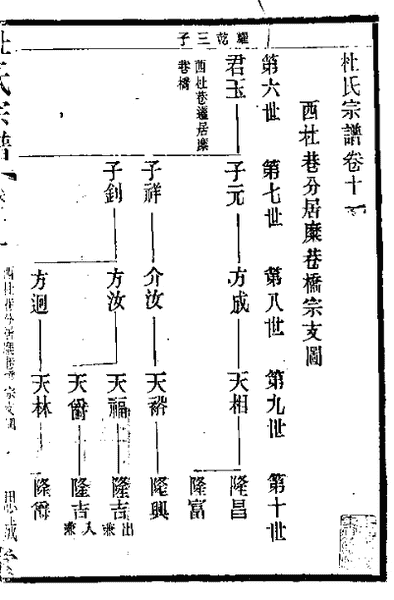 杜氏宗譜卷十一
西杜巷分居糜巷橋宗支圖
第六世
第七世
第八世
第九世
第十世
耀乾三子
君玉
西杜巷遷居糜
巷橋
子元
方成
天相
隆昌
隆富
子祥
介汝
天裕
隆興
子釗
方汝
天福
隆吉
出嗣
天爵
隆吉
入嗣
方迴
天林
隆爵
杜氏宗譜
西杜巷分居糜巷橋宗支圖
思誠